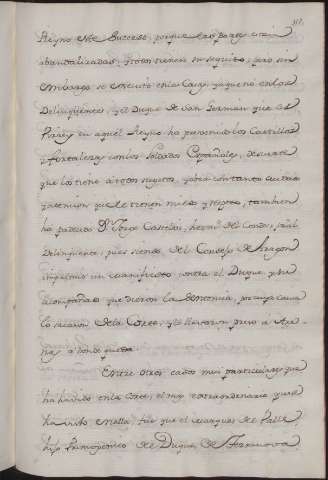 Reyno este Successo, porque las partes eran
abandalizadas, y todos tienen su sequito, pero sin
embargo se executo en la Casa, ya que no en los
Delinquentes, y el Duque de San German que es
Virrey en aquel Reyno ha prevenido los Castillos
y fortalezas con los Soldados Españoles, de suerte
que los tiene a todos sugetos, y obra con tanto cuidado
y atencion que le tienen miedo y respeto, tambien
ha padecido Dn. Jorge Castelvi, herm.o del Conde,
Delinquente, pues siendo del Consejo de Aragon
imprimio un manifiesto contra el Duque, y sus
acompañados que dieron la sentencia, por cuya causa
lo sacaron de la Corte, y le llevaron preso a
a donde queda.
Entre otros casos mui particulares que
ha havido en la Corte, el mas extraordinario que se
ha visto en ella, fue que el Marques de
hijo Primogenito del Duque de Terranova